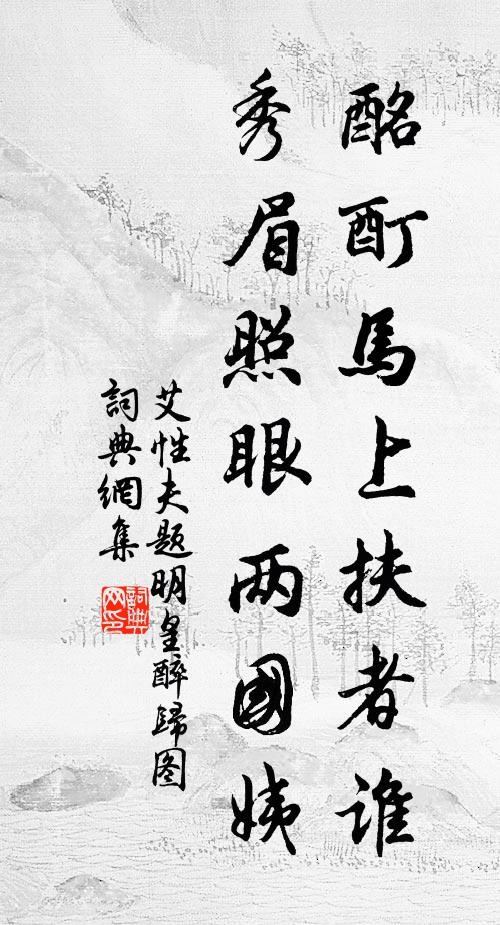 酩酊馬上扶者谁
秀眉照眼两國姨
艾性夫题明皇醉歸图
詞典網集
詞典
网印